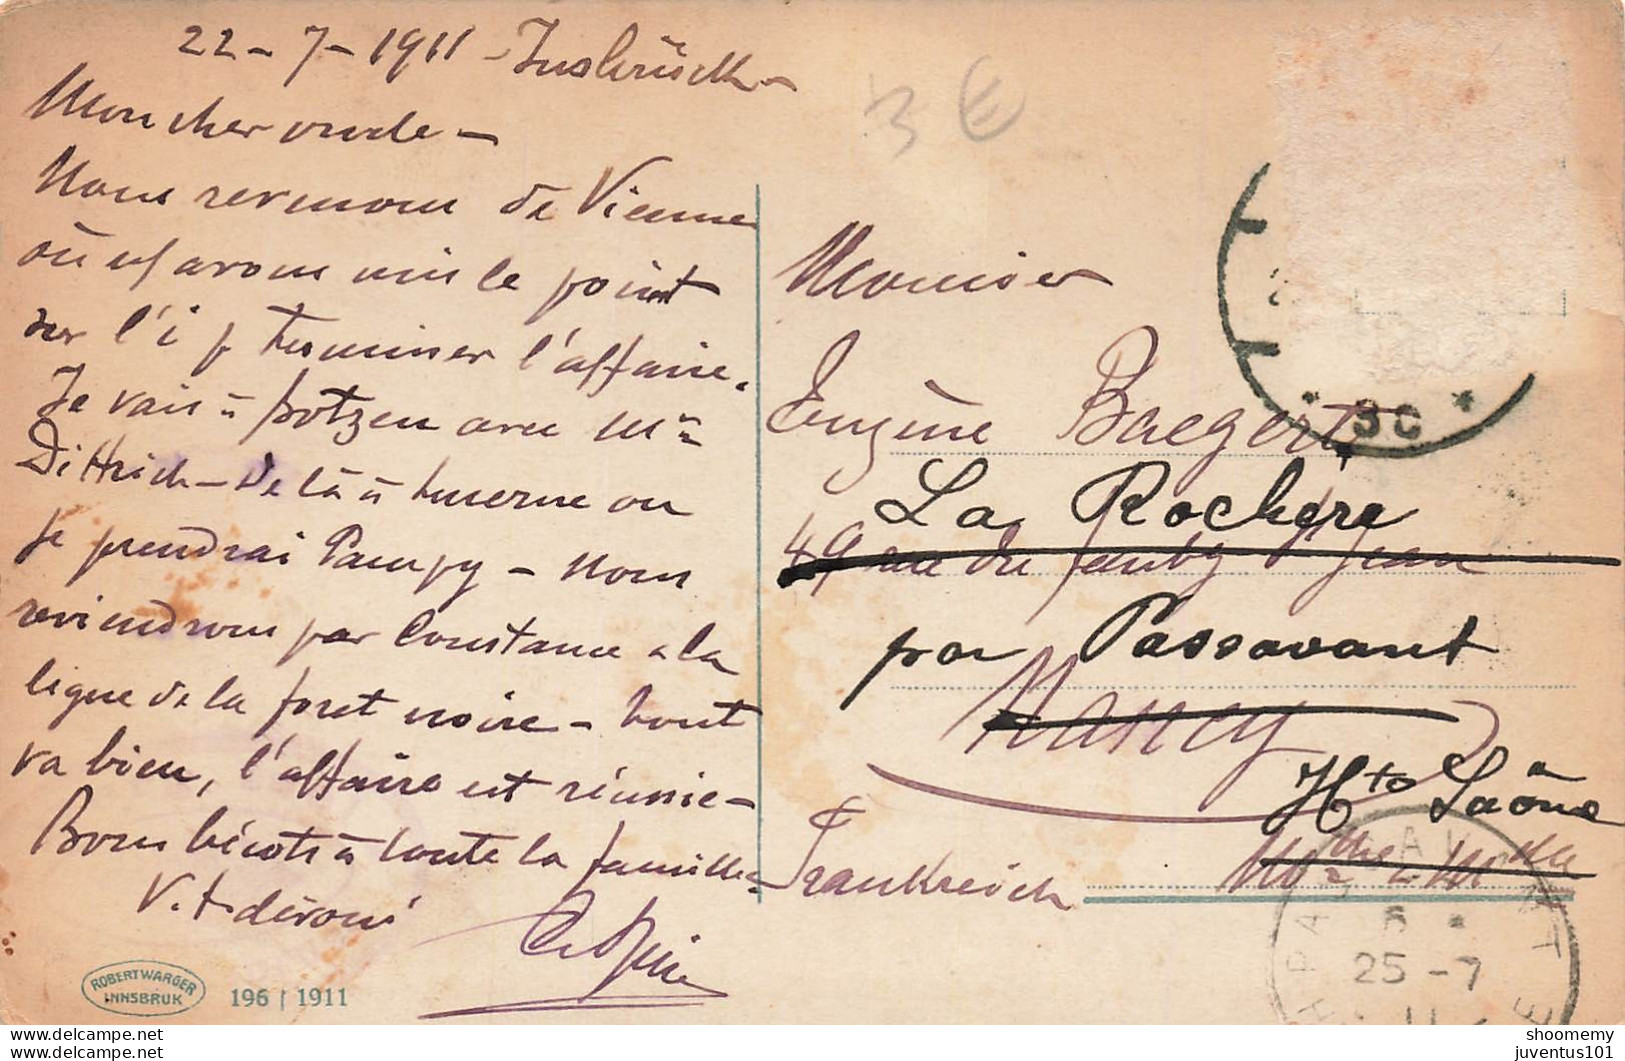 22-7-1911 - Insbrück -
Mon cher oncle -
Nous revenons de Vienne
où j'avons mis le point
sur l'i p terminer l'affaire.
Je vais à Botzen avec Mr
Dittrich - De là à Lucerne ou
je prendrai Pampy - Nous
reviendrons par Constance & la
ligne de la foret noire - tout
va bien, l'affaire est réunie -
Bons bécots à toute la famille -
V. t. dévoué
3 €
Monsieur
Eugène Baegert
La Rochère
49 rue du faubg St Jean
par Passavant
Nancy
Hte Saône
Mthe & Mlle
Frankreich
* 3c *
25 -7
11
ROBERT WARGER
INNSBRUK
196 | 1911
shoomemy
juventus101